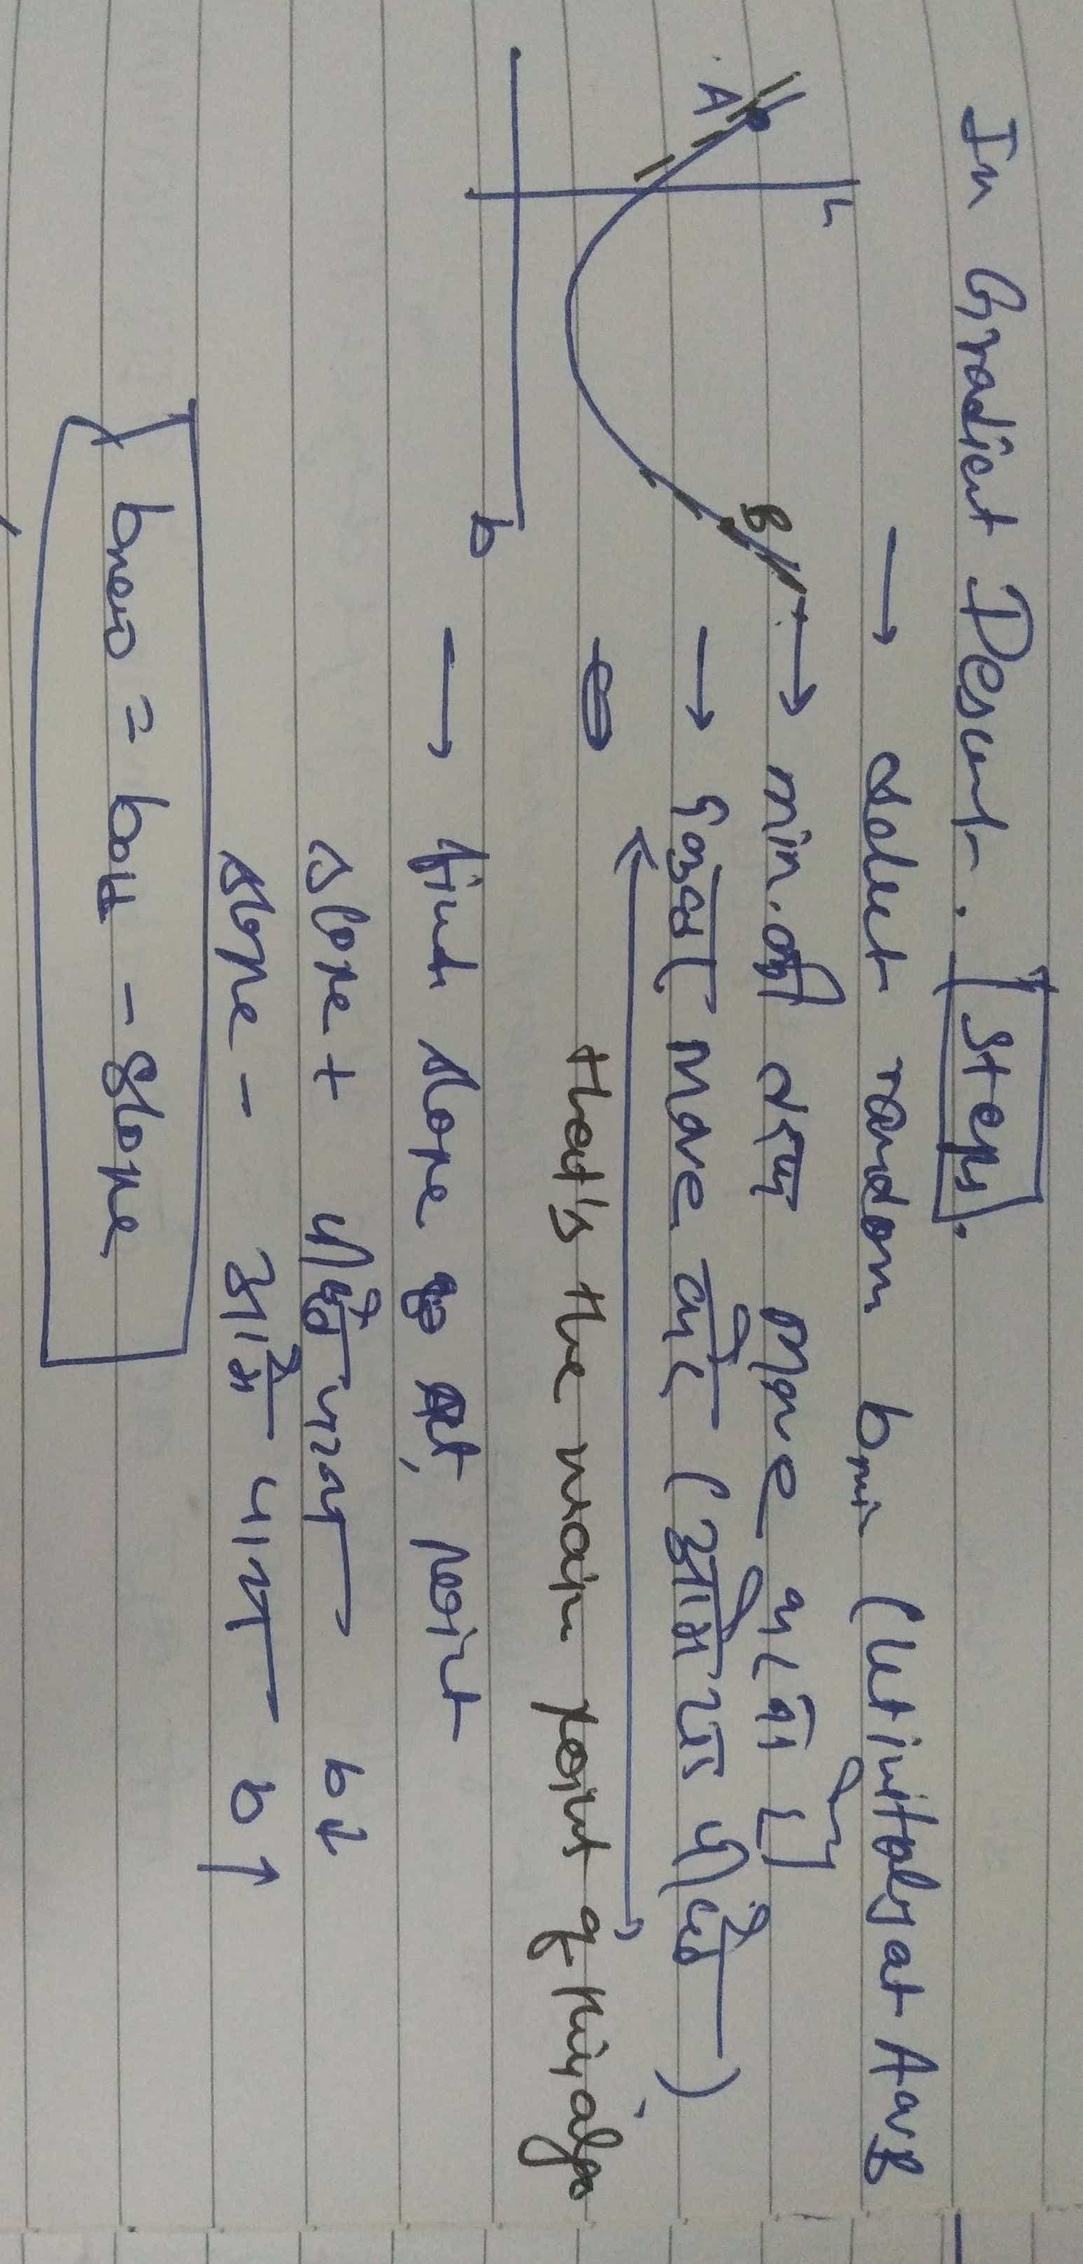 In Gradient Descent. Steps.
→ select random bmin (let initially at A or B
L
A
B
→ min. की तरफ move करना है
→ किधर move करें (आगे या पीछे)
that's the main point of this algo
b
→ find slope at point
slope + पीछे जाना b↓
slope - आगे जाना b↑
bnew = bold - slope